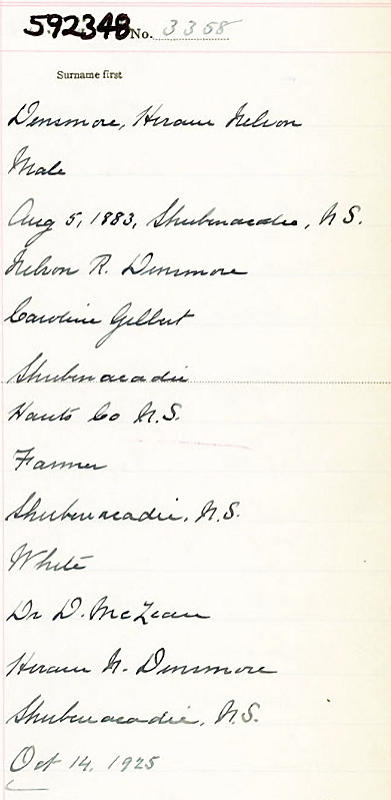 592348 No. 3358
Surname first
Densmore, Hiram Nelson
Male
Aug 5, 1883, Shubenacadie, N.S.
Nelson R. Densmore
Caroline Gilbert
Shubenacadie
Hants Co N.S.
Farmer
Shubenacadie, N.S.
White
Dr D. McLean
Hiram N. Densmore
Shubenacadie, N.S.
Oct 14, 1925